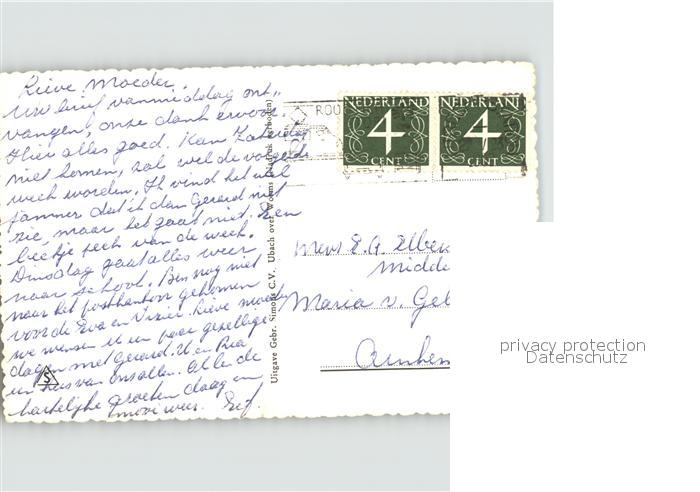 Lieve Moeder,
Uw brief vanmiddag ont-
vangen, onze dank ervoor.
Hier alles goed. Kan Zaterdag
niet komen, zal wel de volgende
week worden. Ik vind het wel
jammer dat ik dan Gerard niet
zie, maar het gaat niet. Een
beetje pech van de week.
Dinsdag gaat alles weer
naar school. Ben nog niet
naar het postkantoor gekomen
voor de Eva en Lieve moeder
we wensen U een paar gezellige
dagen met Gerard. U en Ria
een kus van ons allen. Al de
hartelijke groeten daag en
mooi weer.
S
Uitgave Gebr. Simons C.V. Ubach over Worms (Nadruk verboden)
ROO
NEDERLAND
4
CENT
NEDERLAND
4
CENT
Mevr E.G.
Midde
Maria v. Gel
Arnhem
privacy protection
Datenschutz